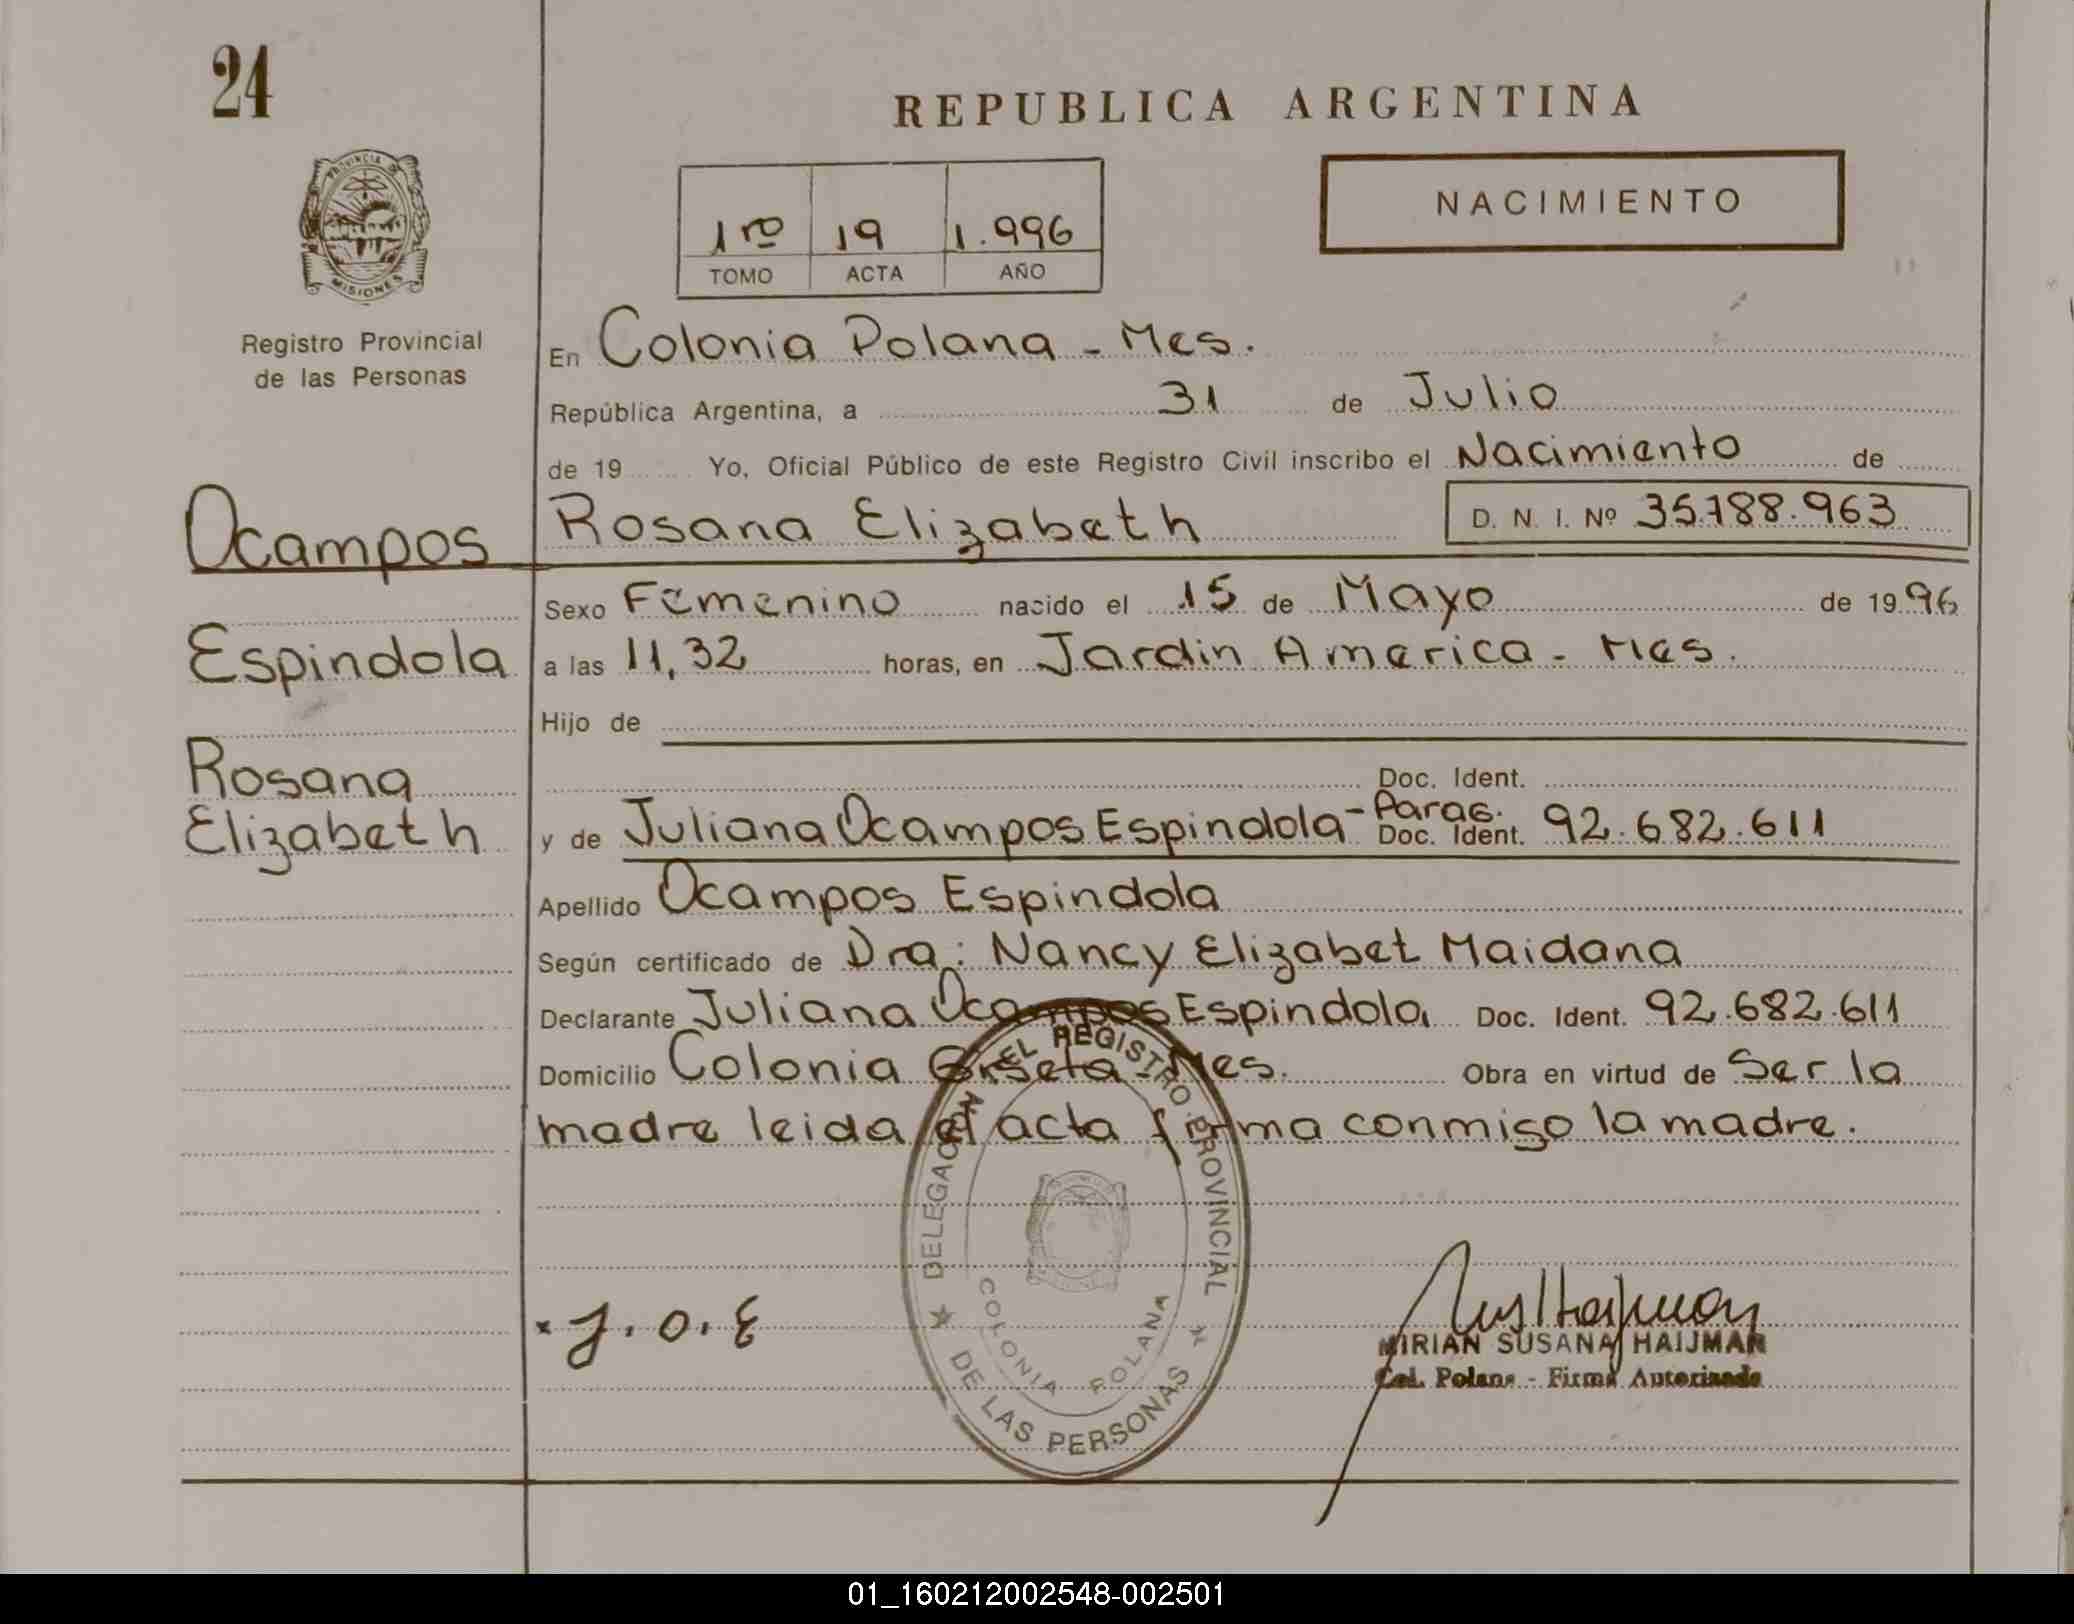 24
REPUBLICA ARGENTINA
PROVINCIA DE
MISIONES
Registro Provincial
de las Personas
1ro 19 1.996
TOMO ACTA AÑO
NACIMIENTO
En Colonia Polana - Mcs.
República Argentina, a 31 de Julio
de 19 Yo, Oficial Público de este Registro Civil inscribo el Nacimiento de
Rosana Elizabeth D. N. I. Nº 35.788.963
Ocampos
Espindola
Rosana
Elizabeth
Sexo Femenino nacido el 15 de Mayo de 1996
a las 11,32 horas, en Jardin America - Mes.
Hijo de
Doc. Ident.
y de Juliana Ocampos Espindola - Parag. Doc. Ident. 92.682.611
Apellido Ocampos Espindola
Según certificado de Dra: Nancy Elizabet Maidana
Declarante Juliana Ocampos Espindola Doc. Ident. 92.682.611
Domicilio Colonia Mes. Obra en virtud de Ser la
madre leida el acta firma conmigo la madre.
DELEGACION EL REGISTRO PROVINCIAL
DE LAS PERSONAS
COLONIA POLANA
x J.O.E
MIRIAN SUSANA HAIJMAN
Col. Polana - Firma Autorizada
01_160212002548-002501